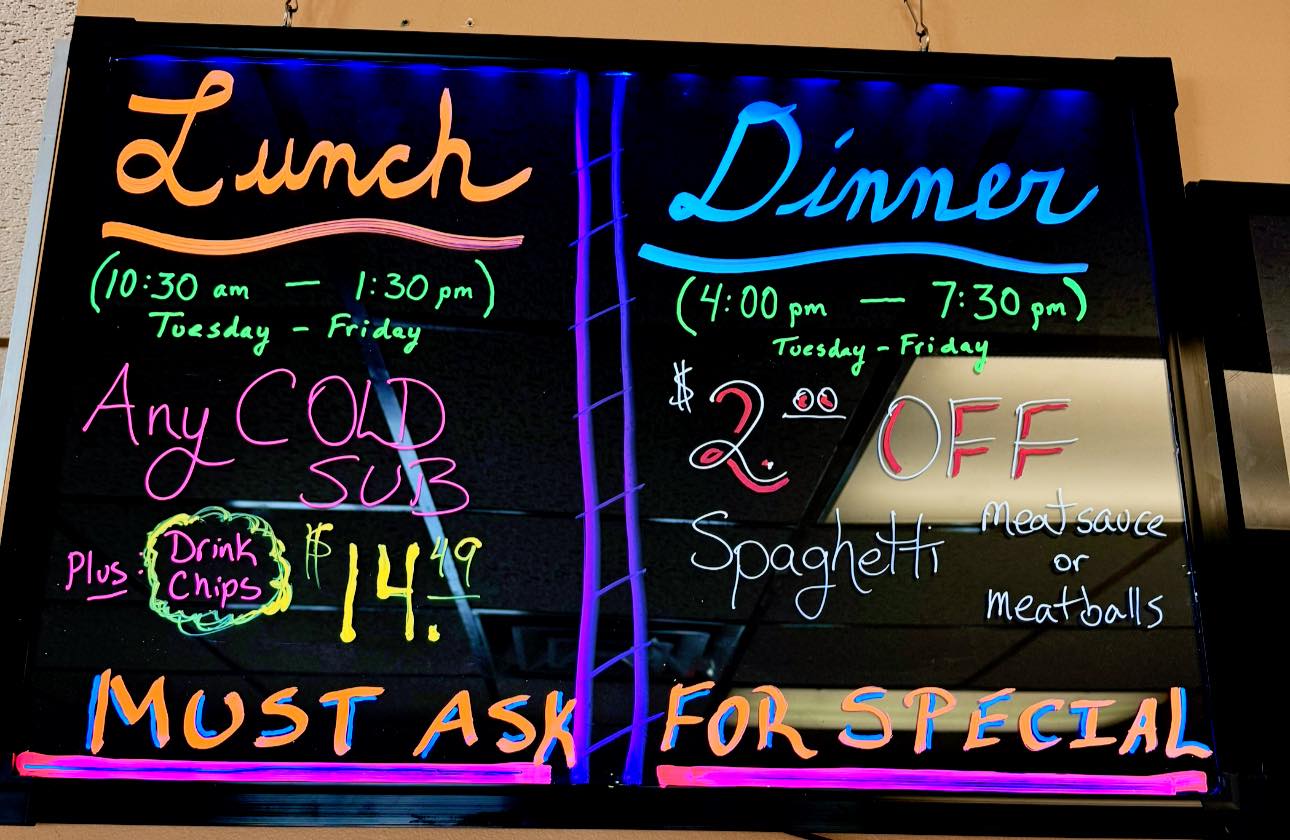 Lunch
(10:30 am — 1:30 pm)
Tuesday - Friday
Any COLD
SUB
Plus: Drink
Chips
$14.49
Dinner
(4:00 pm — 7:30 pm)
Tuesday - Friday
$2.00 OFF
Spaghetti meatsauce
or
meatballs
MUST ASK FOR SPECIAL